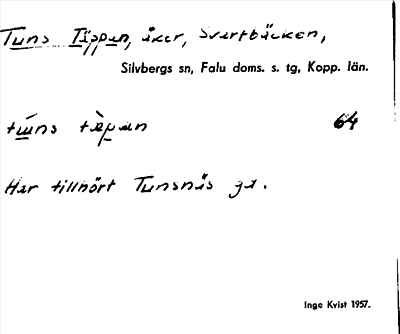 Tuns Täppan, åker, Svartbäcken,
Silvbergs sn, Falu doms. s. tg, Kopp. län.
tùns tæ̀pan 64
Har tillhört Tunsnäs gd.
Inge Kvist 1957.